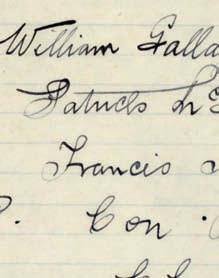 William Galla
Patrick
Francis
Con